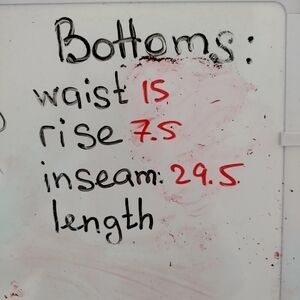 Bottoms:
waist 15
rise 7.5
inseam: 29.5
length